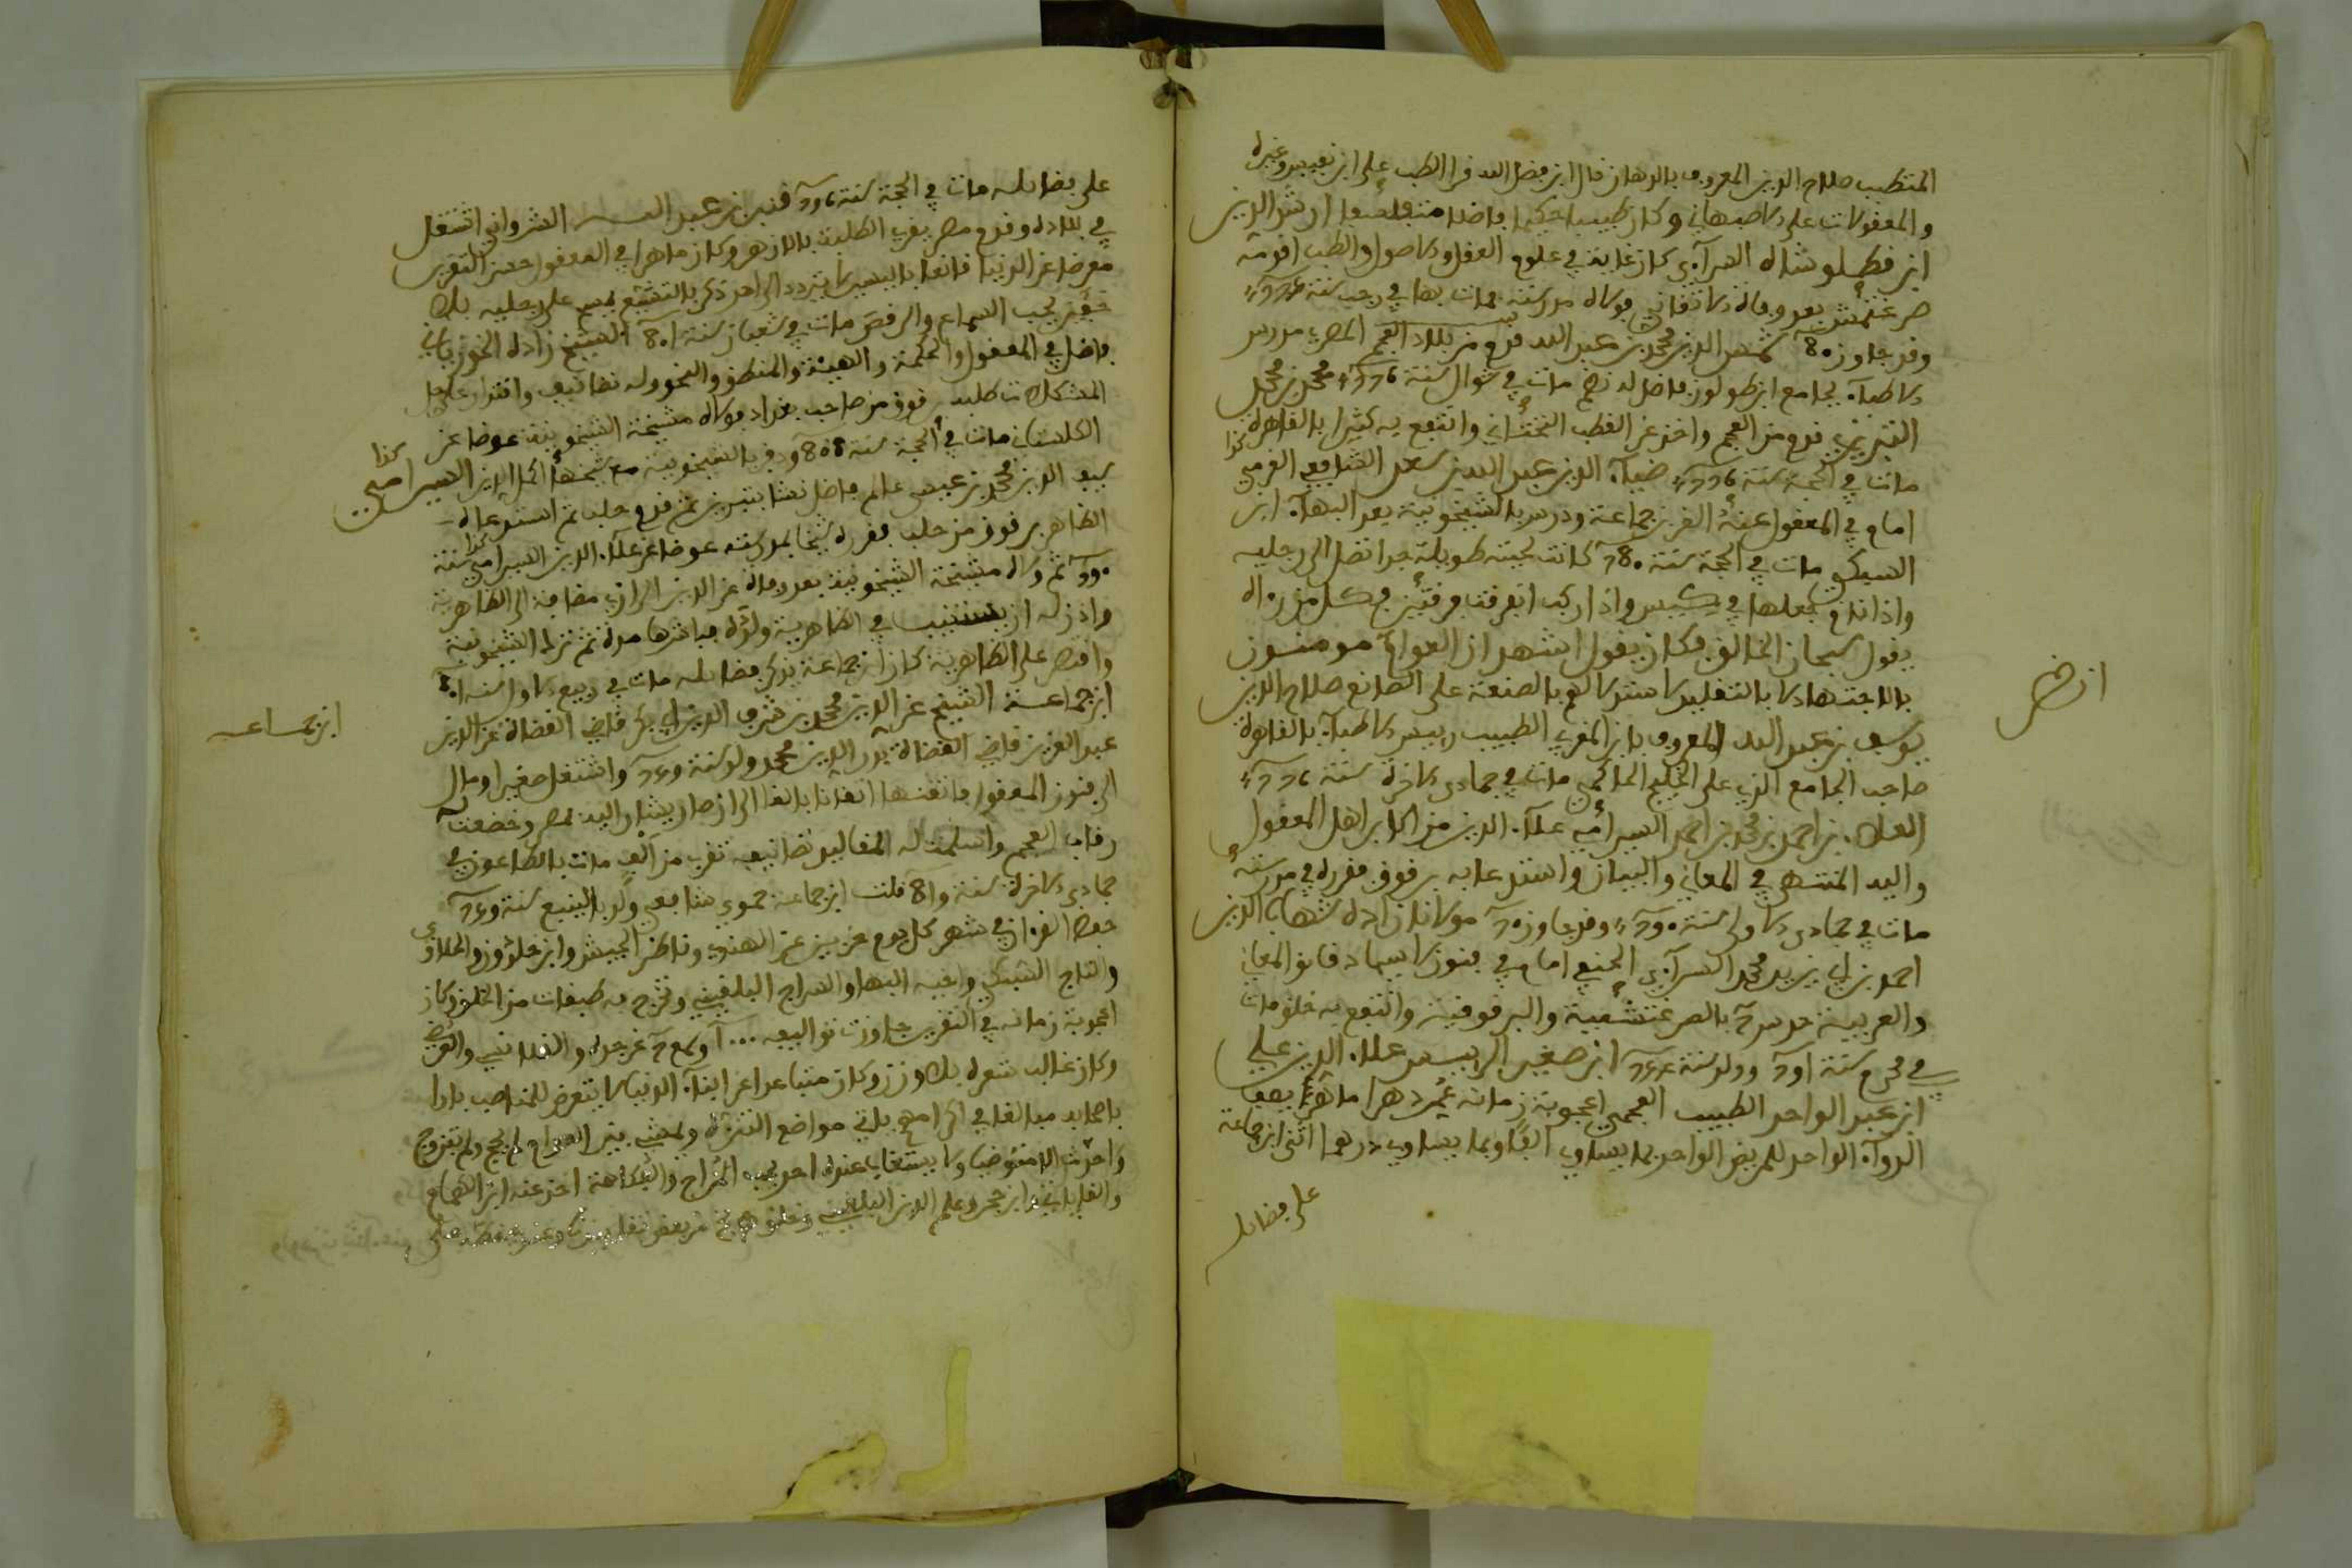 المتطبب صلاح الدين المعروف بالبرهان قال ابن فضل الله قرا الطب على ابن نفيس وغيره
والمعقولات على الاصبهاني وكان طبيبا حكيما فاضلا متفلسفا ارشد الدين
ابن قطلوشاه السرآءي كان غاية في علوم العقل والاصول والطب اقدمه
صرغتمش بعد وفاة الاتقاني فولاه مدرسته مات بها في رجب سنة
وقد جاوز 80 شمس الدين محمد بن عبد الله قدم من بلاد العجم المصر مدرس
الاطبآء بجامع ابن طولون فاضل له نظم مات في شوال سنة 776 محمد بن محمد
التبريزي قدم من العجم واخذ عن القطب التحتاني وانتفع به كثير بالقاهرة
مات في الحجة سنة 776 ضيآء الدين عبد الله بن سعد الشافعي القرمي كذا
امام في المعقول عنه العز بن جماعة ودرس بالشيخونية بعد البهآء ابن
السبكي مات في الحجة سنة 780 كانت لحيته طويلة جدا تصل الى رجليه
واذا نام يجعلها في كيس واذا ركب انفرقت فرقتين فكل من رءاه
يقول سبحان الخالق فكان يقول اشهد ان العوام مومنون
بالاجتهاد لا بالتقليد لاستدلالهم بالصنعة على الصانع صلاح الدين
يوسف بن عبد الله المعروف بابن المغربي الطبيب رييس الاطبآء بالقاهرة
صاحب الجامع الذي على الخليج الحاكمي مات في جمادى الاخرة سنة 776
العلاء بن احمد بن محمد بن احمد السيرامي علآء الدين من اكابر اهل المعقول
واليه المنتهى في المعاني والبيان واستدعا به برقوق فقرره في مدرسته
مات في جمادى الاولى سنة 790 وقد جاوز 70 مولانا زاده شهاب الدين
احمد بن ابي يزيد محمد السرآءي الحنفي امام في فنون لا سيما دقائق المعاني
والعربية درس بالصرغتمشية والبرقوقية وانتفع به خلق مات
في محرم سنة 791 وولد سنة 754 ابن صغير الرييس علاء الدين علي
ابن عبد الواحد الطبيب العجمي اعجوبة زمانه عمر دهرا ماهرا يصف
الدوآء الواحد للمريض الواحد بما يساوي الفا وبما يساوي درهما اثنى ابن جماعة
على فضايله
انظر
على فضايله مات في الحجة سنة 796 قنبر بن عبد الله الشرواني اشتغل
في بلاده وقدم مصر يقري الطلبة بالازهر وكان ماهرا في المعقول حسن التقرير
معرضا عن الدنيا قانعا باليسير لا يتردد الى احد ذكر بالتشيع يمسح على رجليه بلا
خفين يحب السماع والرقص مات في شعبان سنة 801 الشيخ زاده الخرزباني
فاضل في المعقول والحكمة والهيئة والمنطق والنحو وله تصانيف واقتدار على حل
المشكلات طلبه برقوق من صاحب بغداد فولاه مشيخة الشيخونية عوضا عن
الكلستاني مات في الحجة سنة 808 ودفن بالشيخونية مع شيخها اكمل الدين السيرامي كذا
سيف الدين محمد بن عيسى عالم فاضل نشا بتبريز ثم قدم حلب ثم استدعاه
الظاهر برقوق من حلب فقرره شيخا بمدرسته عوضا عن علآء الدين السيرامي كذا سنة
790 ثم ولاه مشيخة الشيخونية بعد وفاة عز الدين الرازي مضافة الى الظاهرية
واذن له ان يستنيب في الظاهرية ولده فباشرها مدة ثم ترك الشيخونية
واقتصر على الظاهرية كان ابن جماعة يذكر فضايله مات في ربيع الاول سنة 810
ابن جماعة الشيخ عز الدين محمد بن شرف الدين ابي بكر قاضي القضاة عز الدين
عبد العزيز قاضي القضاة بدر الدين محمد ولد سنة 749 واشتغل صغيرا ومال
الى فنون المعقول فاتقنها اتقانا بالغا الى ان صار يشار اليه بمصر وخضعت له
رقاب العجم واسلمت له المقاليد تصانيفه تقرب من الف مات بالطاعون في
جمادى الاخرة سنة 819 قلت ابن جماعة حموي شافعي ولد بالينبع سنة 749
حفظ القرآن في شهر كل يوم حزبين عن الهندي وناظر الجيش وابن خلدون والحلاوي
والتاج السبكي واخيه البها والسراج البلقيني وتخرج به طبقات من الخلق وكان
اعجوبة زمانه في التقرير جاوزت تواليفه
وكان غالب شعره بلا وزن وكان متباعدا عن ابنآء الدنيا لا يتعرض للمناصب بارا
باصحابه مبالغا في اكرامهم ياتي مواضع التنزه ويمشي بين العوام لم يحج ولم يتزوج
ولا يحدث الا متوضيا ولا يستغاب عنده احد يحب المزاح والفكاهة اخذ عنه ابن الهمام
والقاياتي وابن حجر وعلم الدين البلقيني
ابن جماعه